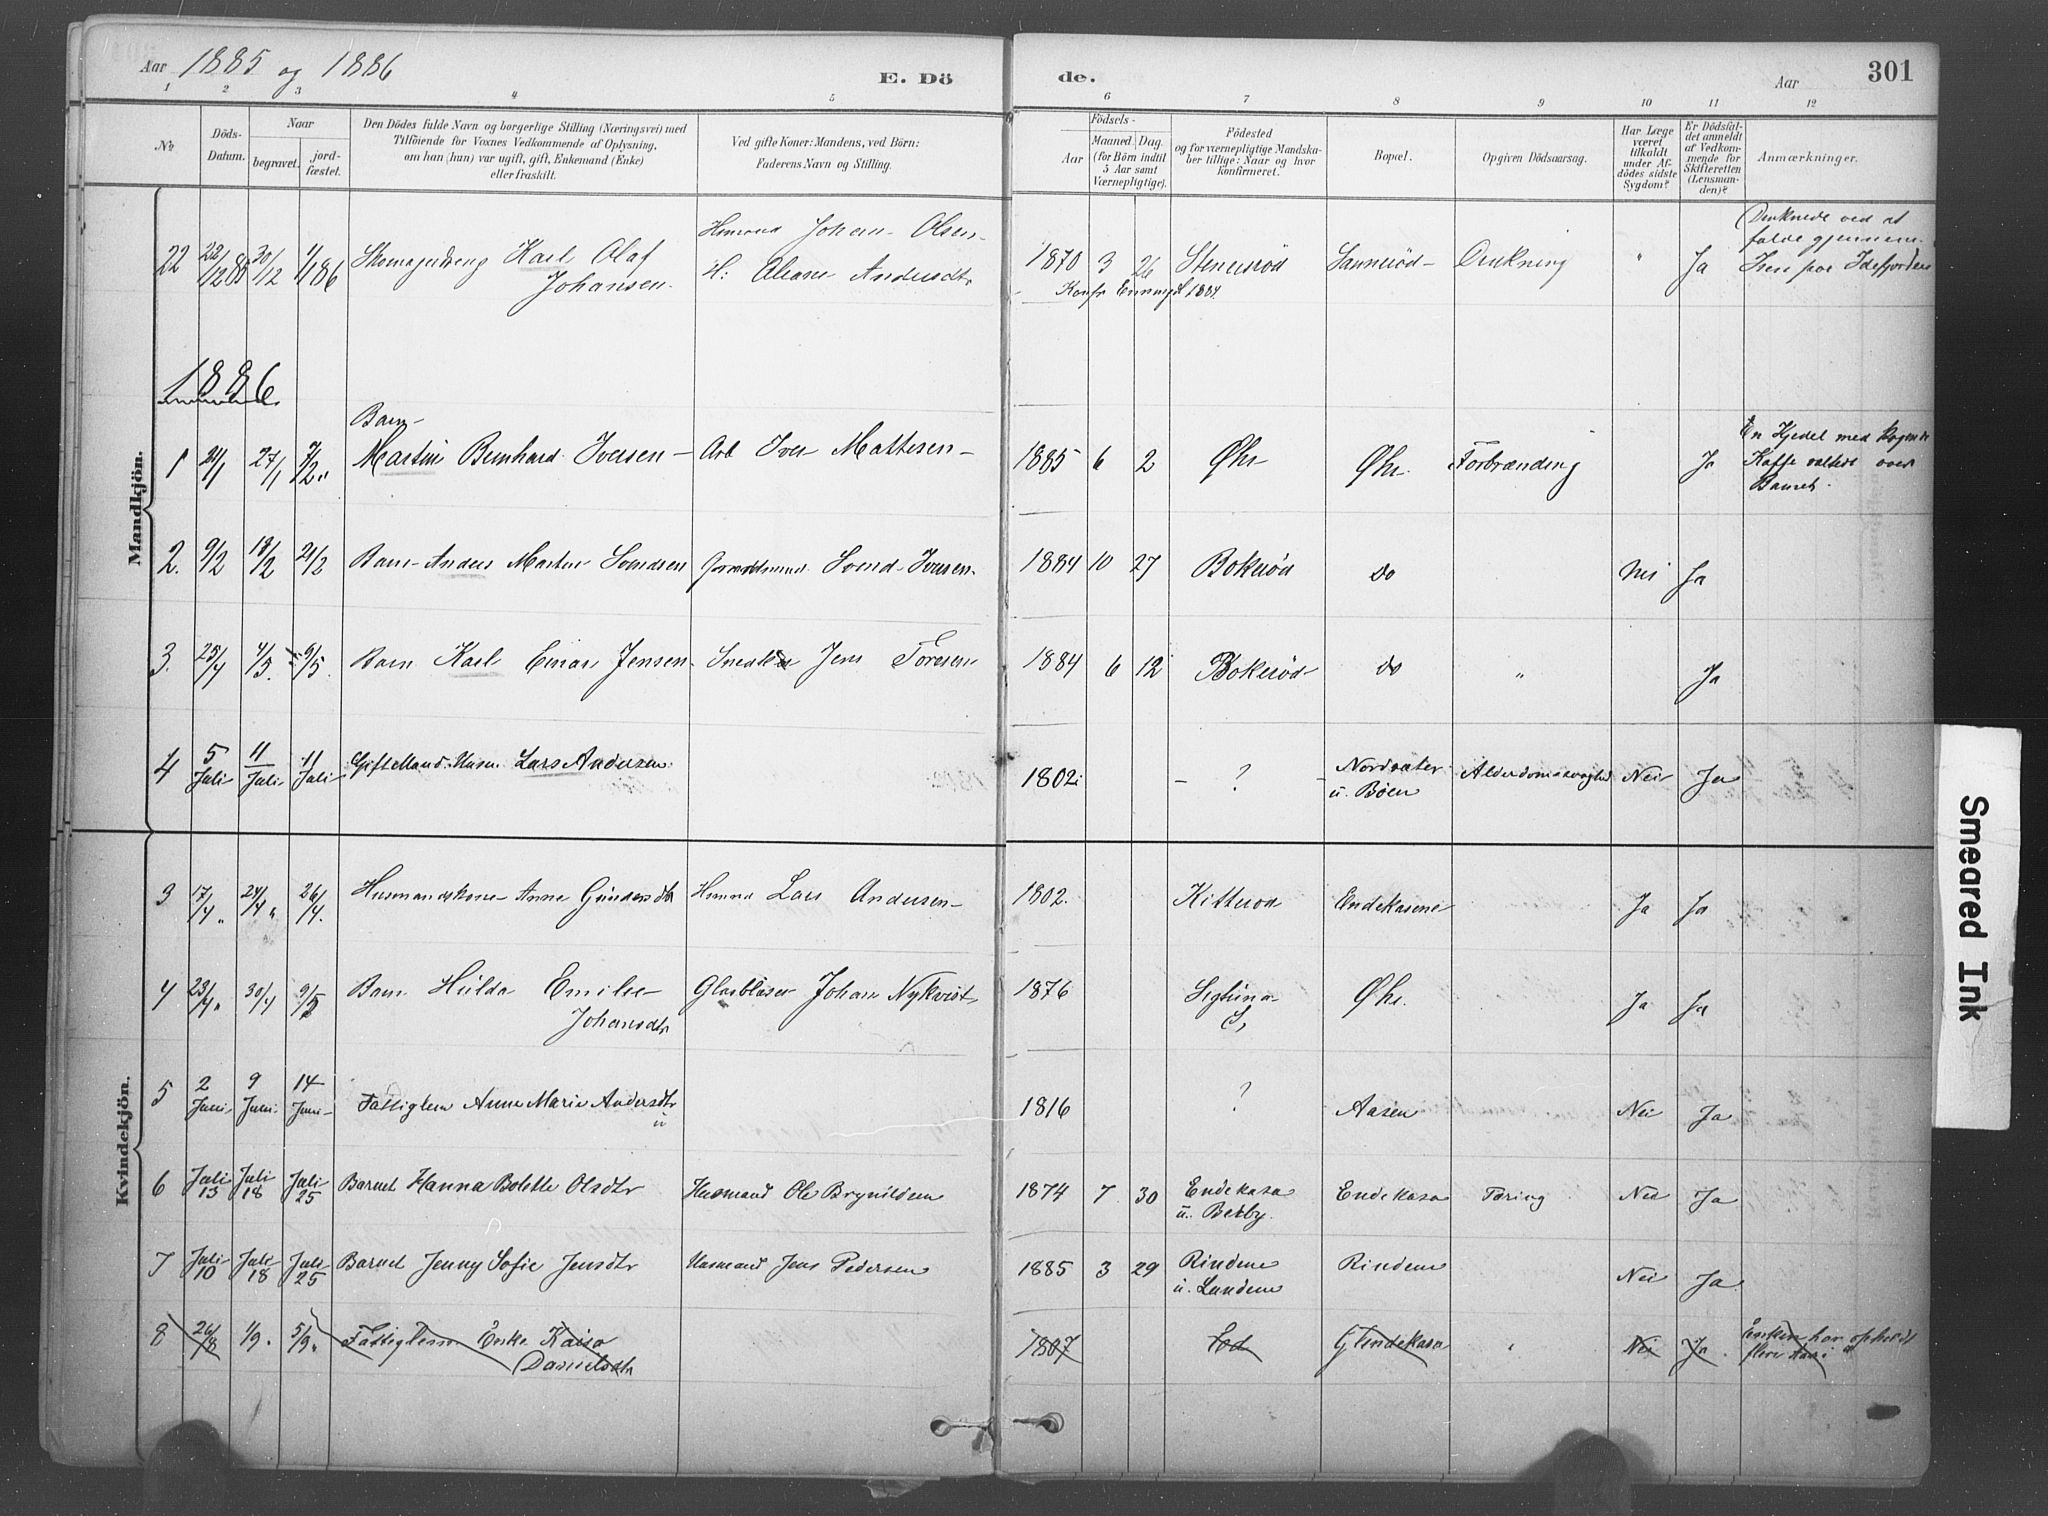 Aar 1885 og 1886 E. Dö
de. Aar 301
1 2 3 4 5 6 7 8 9 10 11 12
No.
Döds-
Datum.
Naar
begravet.
jord-
fæstet.
Den Dödes fulde Navn og borgerlige Stilling (Næringsvei) med
Tilföiende for Voxnes Vedkommende af Oplysning,
om han (hun) var ugift, gift, Enkemand (Enke)
eller fraskilt.
Ved gifte Koner: Mandens, ved Börn:
Faderens Navn og Stilling.
Födsels-
Aar
Maaned. Dag.
(for Börn indtil
5 Aar samt
Værnepligtige).
Födested
og for værnepligtige Mandska-
ber tillige: Naar og hvor
konfirmeret.
Bopæl.
Opgiven Dödsaarsag.
Har Læge
været
tilkaldt
under Af-
dödes sidste
Sygdom?
Er Dödsfal-
det anmeldt
af Vedkom-
mende for
Skifteretten
(Lensman-
den)?
Anmærkninger.
Mandkjön.
22 22/12 85 30/12 4/1 86 Karl Olaf
Johansen
Johan Olsen
H: Andersdtr
1870 3 26 Stenerød Sannerød Drukning " Ja
Konfr 1884.
Druknede ved at
falde gjennem
Isen paa Idefjorden
1886
Barn
1 21/1 27/1 7/2 Martin Bernhard Iversen Arb Iver Mattesen 1885 6 2 Øhr Øhr. Forbrænding Ja
En Kjedel med kogende
Kaffe væltede over
Barnet.
2. 9/2 18/2 21/2 Barn Anders Martin Svendsen Svend Iversen 1884 10 27 Bokerød do Nei Ja
3. 25/4 4/5. 9/5. Barn Karl Einar Jensen Snedker Jens Toresen 1884 6 12 Bokerød do " Ja
4 5 Juli 11 Juli 11 Juli Gift Mand. Husm. Lars Andersen 1802 ? Nordsæter
u. Böen Alderdomssvaghed Nei Ja
Kvindekjön.
3 17/4 24/4 26/4. Husmandskone Anne Gundersdtr Lars Andersen 1802. Kitterød Endekasene Ja Ja
4 23/4 30/4 9/5 Barn Hulda Emilie
Johansdtr
Glasblæser Johan Nykvist 1876 Øhr. Ja Ja
5 2 Juni 9 Juni. 14 Juni Fattiglem Anne Marie Andersdtr
u
1816 ? Aasen Nei Ja
6 Juli 13 Juli 18 Juli 25 Barnet Hanna Bolette Olsdtr Husmand Ole Brynildsen 1874 7 30 Endekasa
u. Berby. Endekasa Tæring Nei Ja
7 Juli 10 Juli 18 Juli 25 Barnet Jenny Sofie Jensdtr Husmand Jens Pedersen 1885 3 29 Rindene
u. Lundene Rindene Nei Ja
8 26/8 1/9. 5/9. Fattiglem Enke Kaisa
Danielsdtr
1807 Glendekasa " Nei Ja
Enken har opholdt
flere Aar i
Smeared Ink